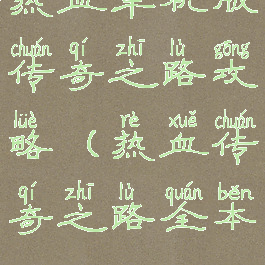 热血单机版
chuán qí zhī lù gōng
传奇之路攻
lüè rè xuě chuán
略(热血传
qí zhī lù quán běn
奇之路全本